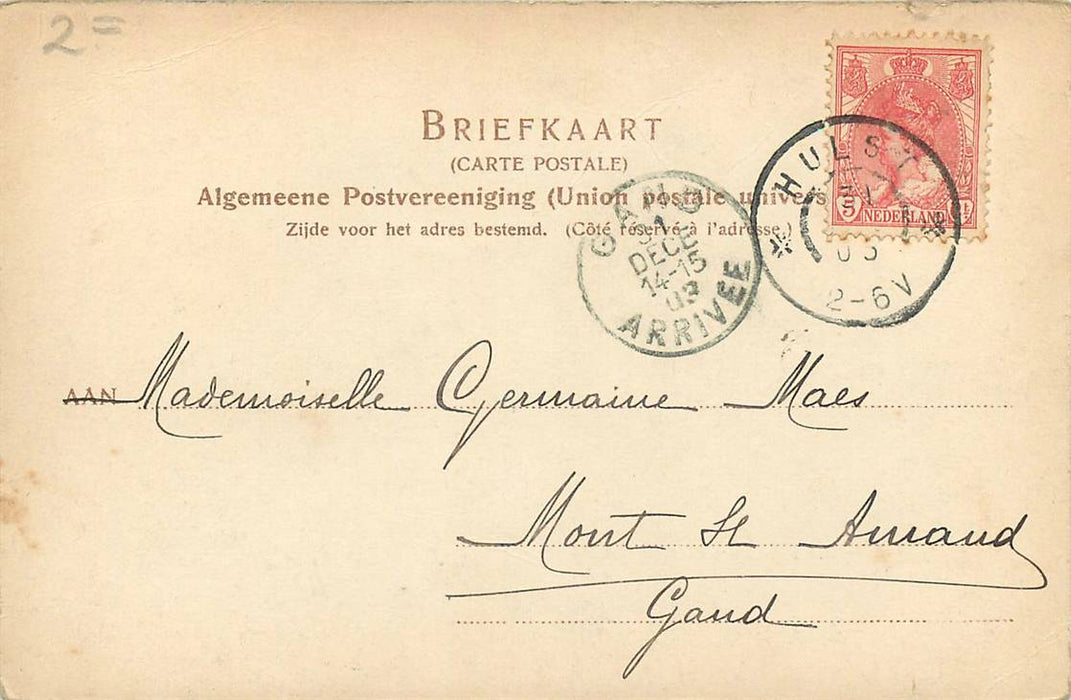 2=
BRIEFKAART
(CARTE POSTALE)
Algemeene Postvereeniging (Union postale univers
Zijde voor het adres bestemd. (Côté réservé à l'adresse.)
HULST
2-6V
5
NEDERLAND
GAND
31
DECE
14-15
03
ARRIVEE
AAN Mademoiselle Germaine Maes
Mont St Amand
Gand